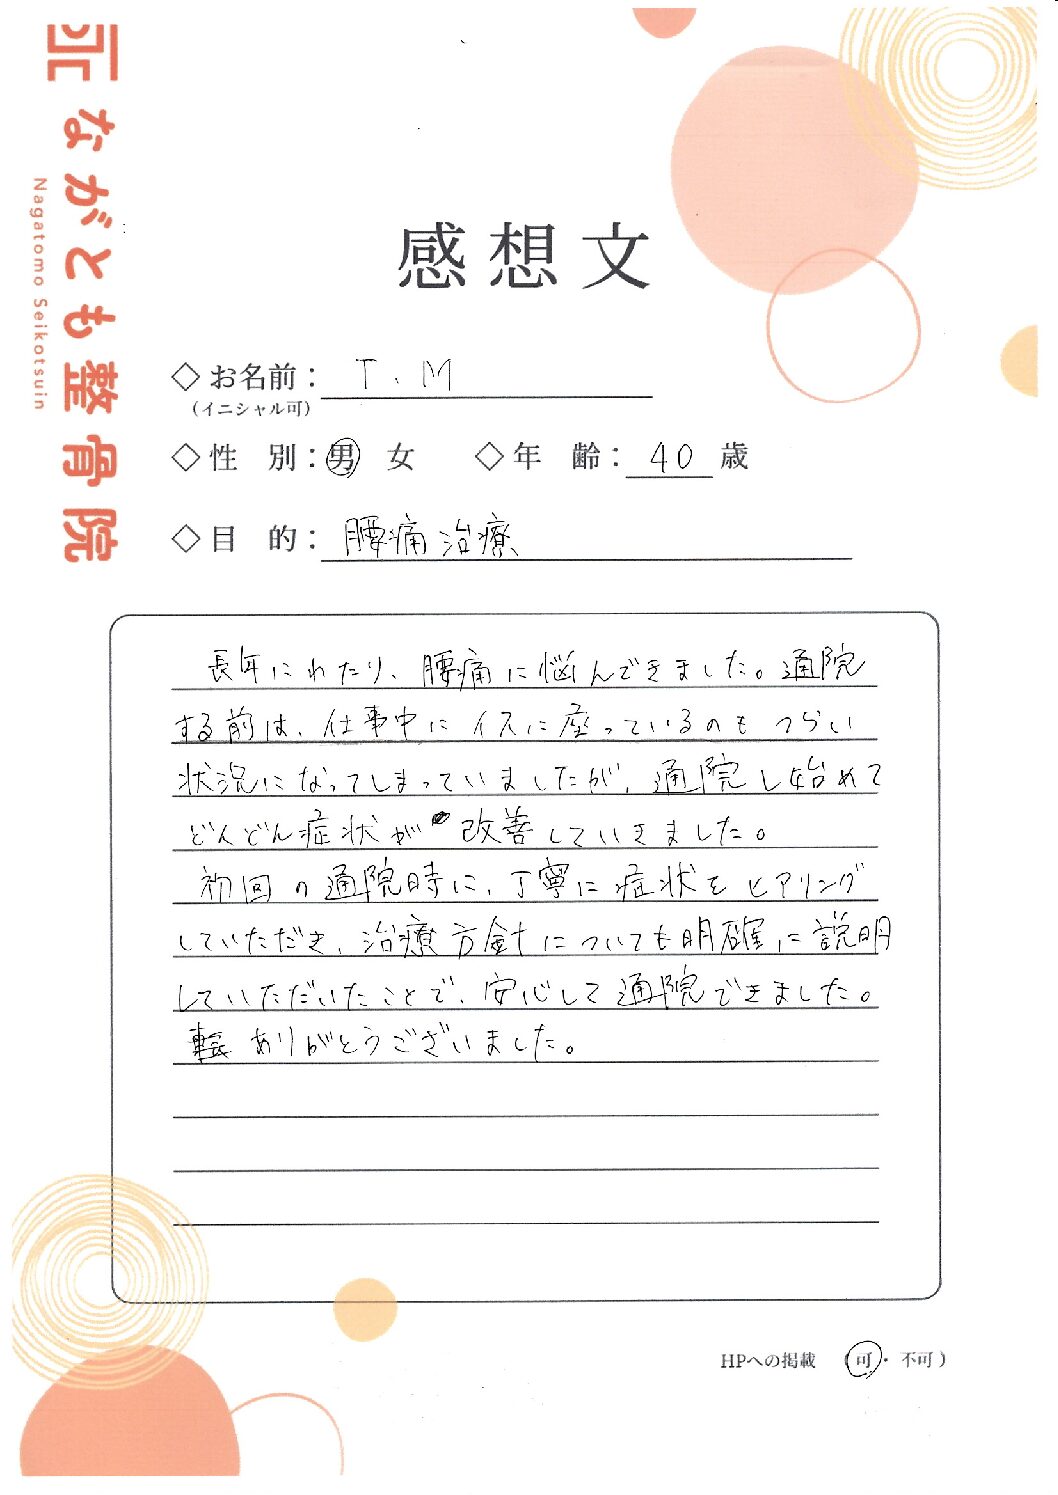 ながとも整骨院
Nagatomo Seikotsuin
感想文
◇お名前： T.M
（イニシャル可）
◇性 別：男 女 ◇年 齢： 40 歳
◇目 的： 腰痛治療
長年にわたり、腰痛に悩んできました。通院
する前は、仕事中に イスに座っているのも つらい
状況になってしまっていましたが、通院し始めて
どんどん症状が 改善していきました。
初回の通院時に、丁寧に症状をヒアリング
していただき、治療方針についても明確に説明
していただいたことで、安心して通院できました。
ありがとうございました。
HPへの掲載 （可・不可）